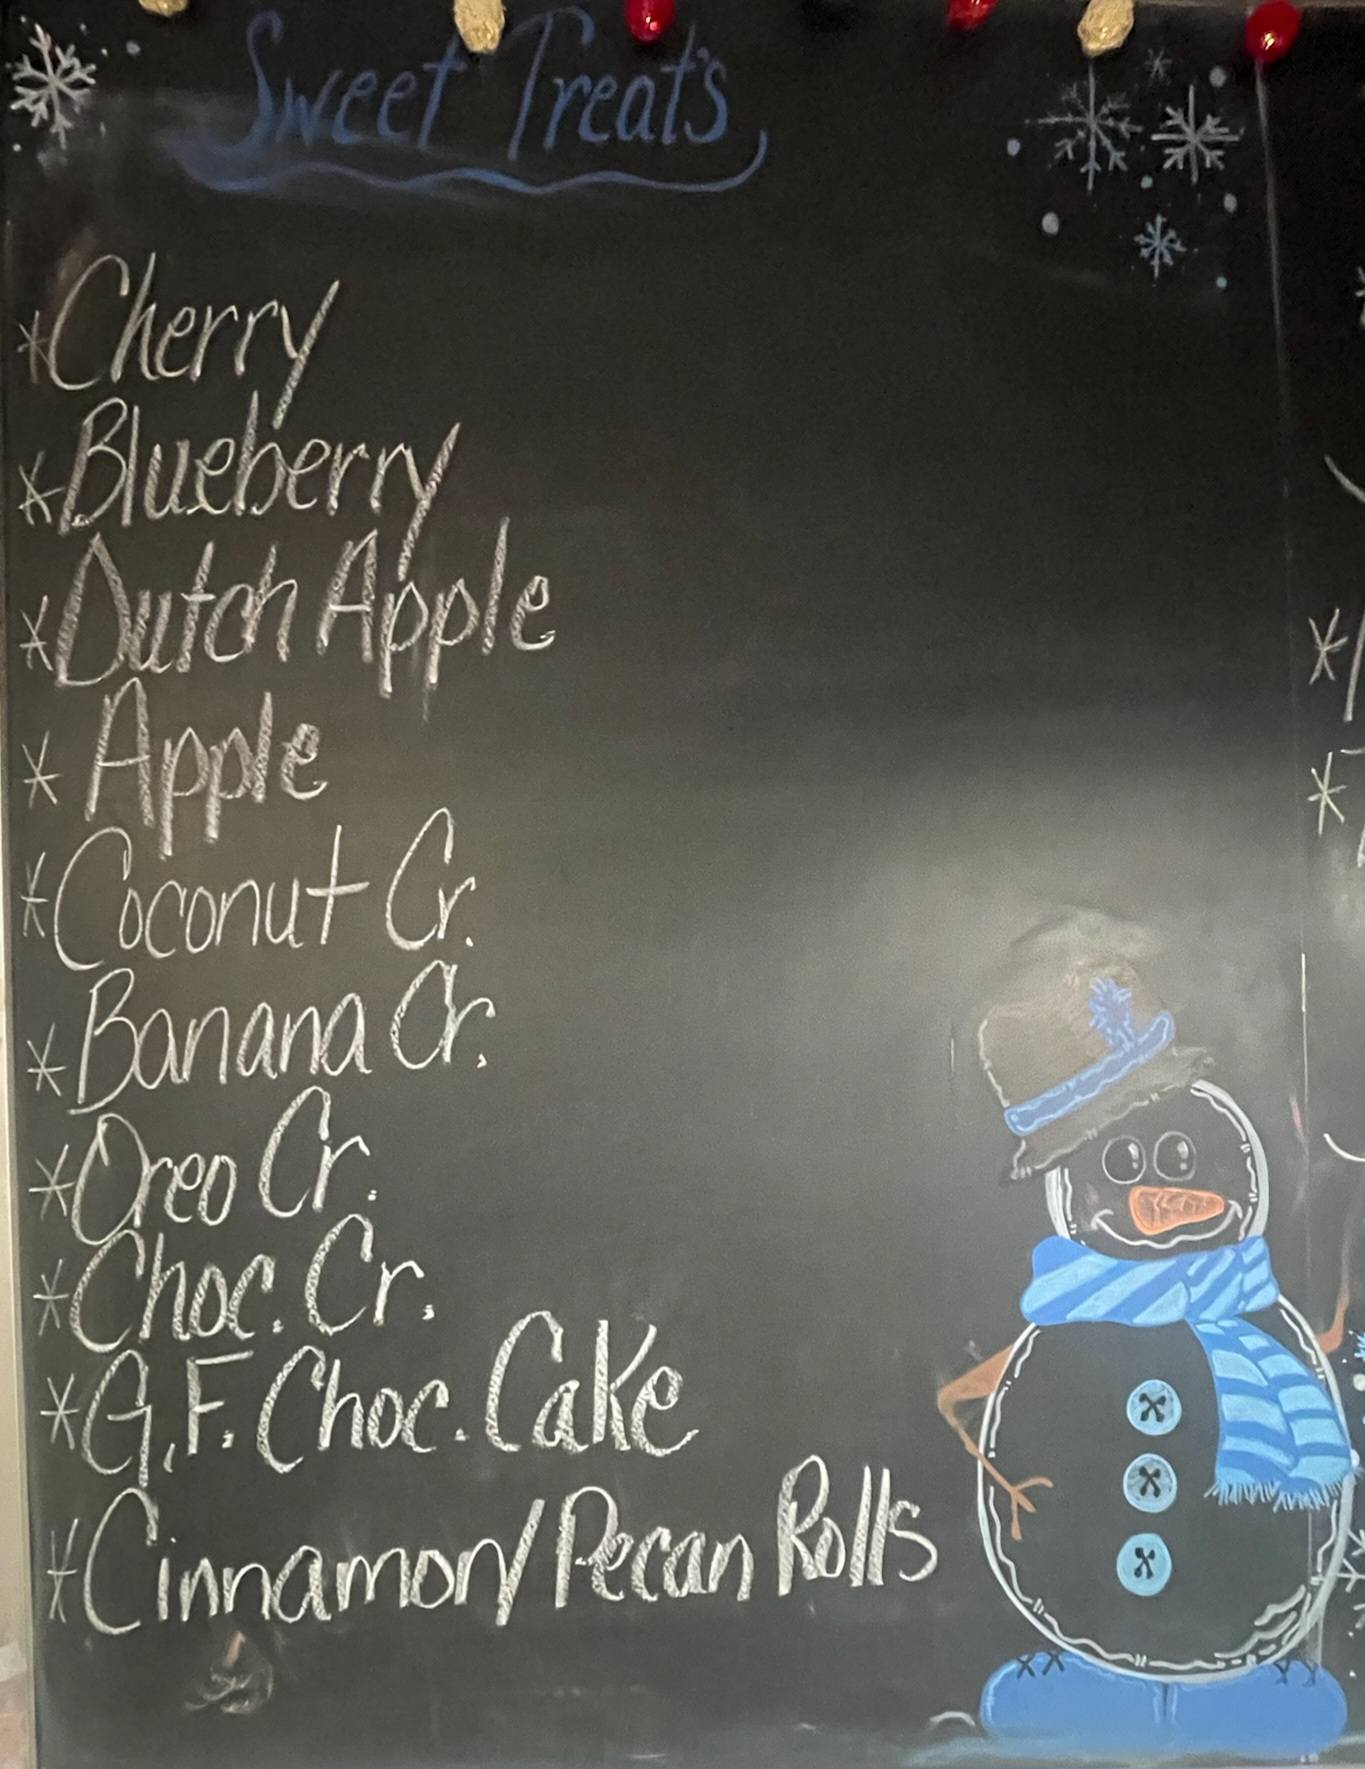 Sweet Treat's
*Cherry
*Blueberry
*Dutch Apple
* Apple
*Coconut Cr.
*Banana Cr.
*Oreo Cr.
*Choc. Cr.
*G.F. Choc. Cake
*Cinnamon/Pecan Rolls